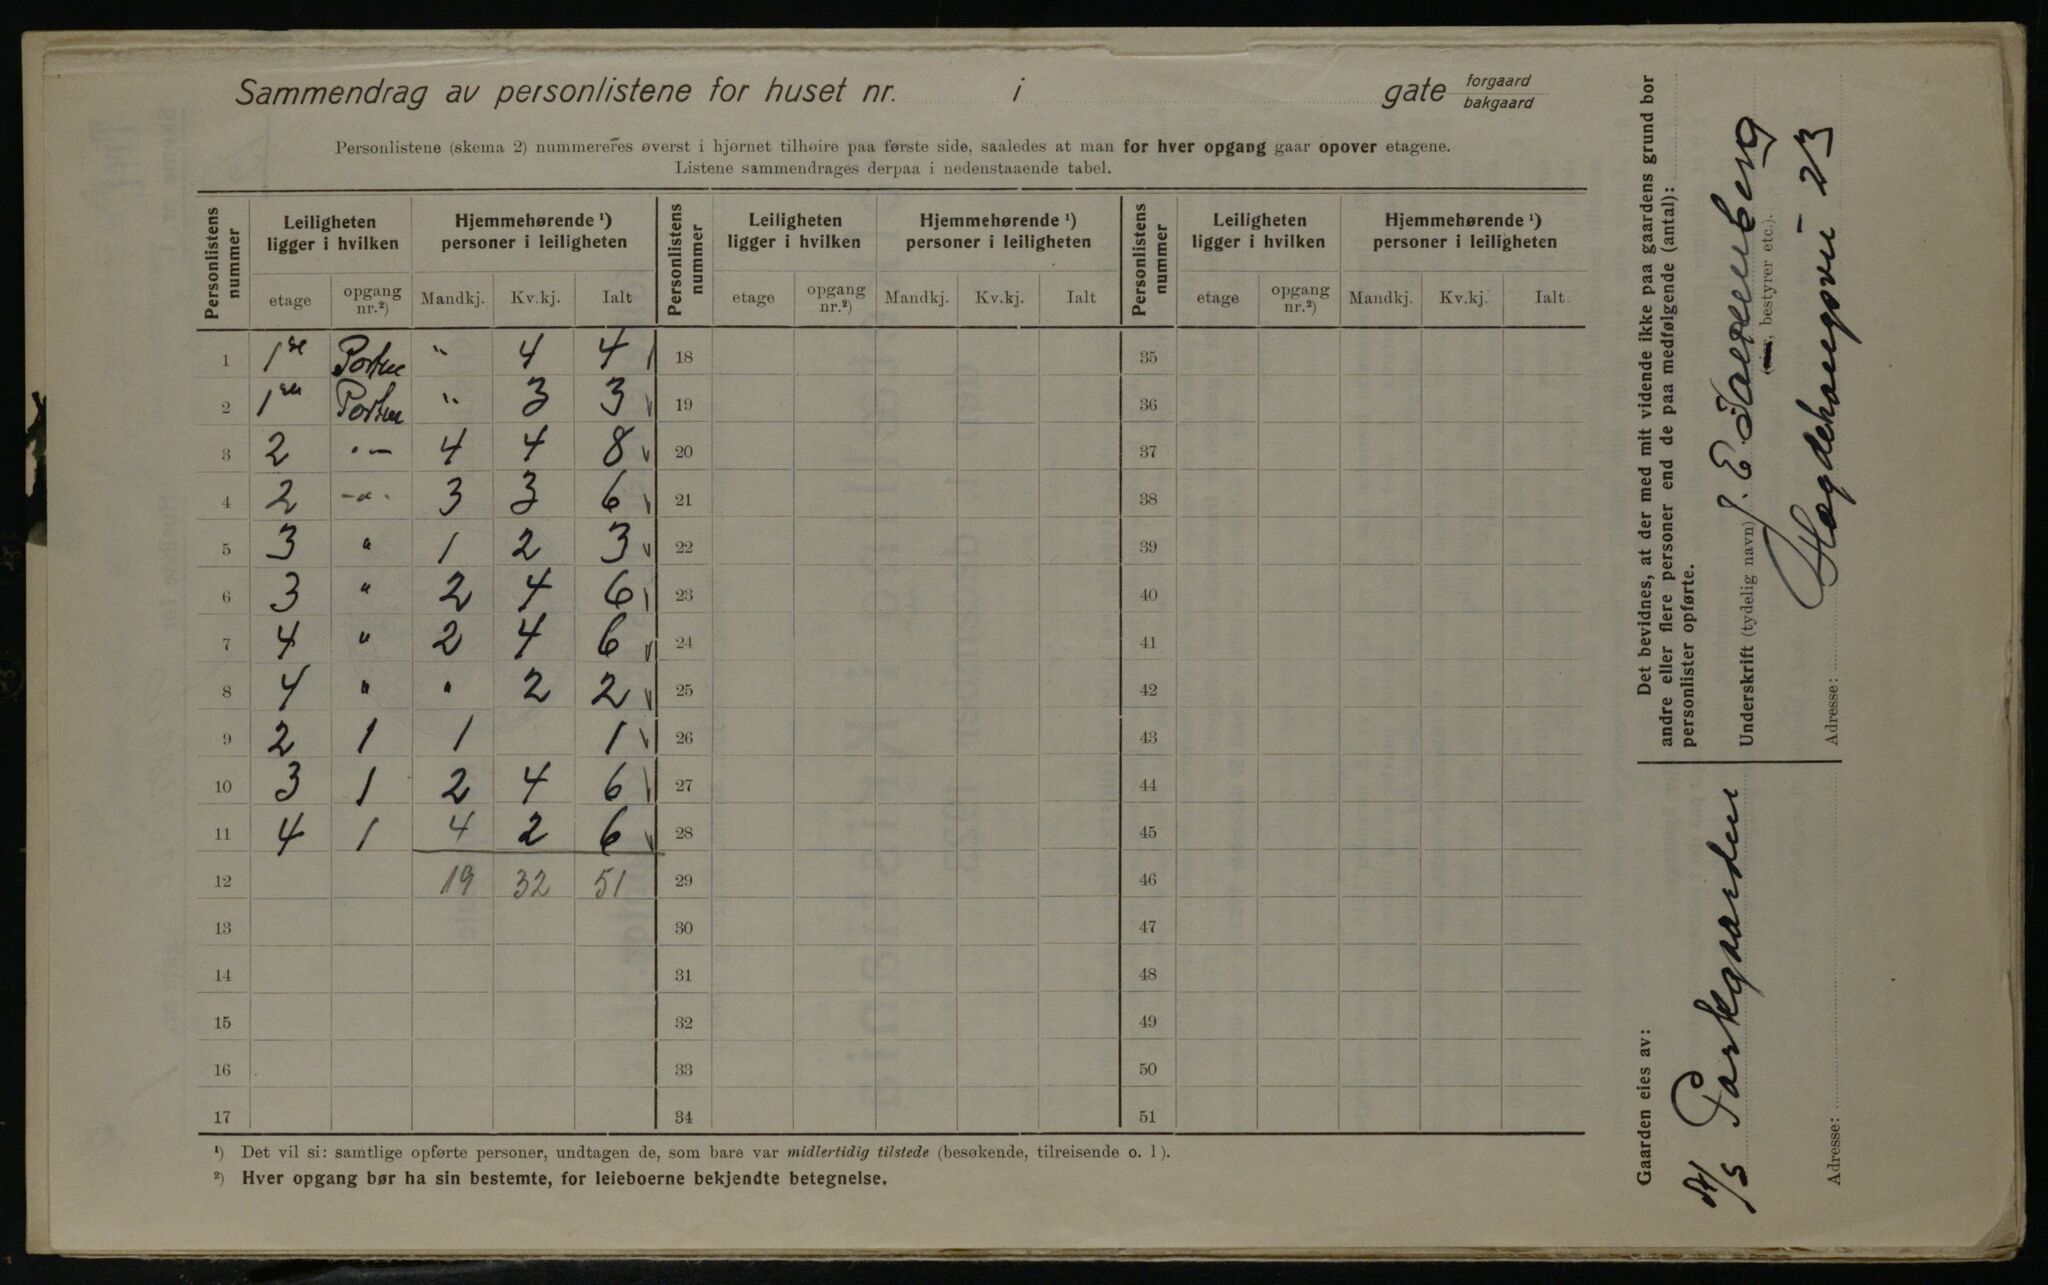 Sammendrag av personlistene for huset nr. i gate forgaard bakgaard
Personlistene (skema 2) nummereres øverst i hjørnet tilhøire paa første side, saaledes at man for hver opgang gaar opover etagene.
Listene sammendrages derpaa i nedenstaaende tabel.
Personlistens nummer Leiligheten ligger i hvilken Hjemmehørende ¹) personer i leiligheten Personlistens nummer Leiligheten ligger i hvilken Hjemmehørende ¹) personer i leiligheten Personlistens nummer Leiligheten ligger i hvilken Hjemmehørende ¹) personer i leiligheten
etage opgang nr.²) Mandkj. Kv.kj. Ialt etage opgang nr.²) Mandkj. Kv.kj. Ialt etage opgang nr.²) Mandkj. Kv.kj. Ialt
1 1ste Porten " 4 4 18 35
2 1ste Porten " 3 3 19 36
3 2 "— 4 4 8 20 37
4 2 -"- 3 3 6 21 38
5 3 " 1 2 3 22 39
6 3 " 2 4 6 23 40
7 4 " 2 4 6 24 41
8 4 " " 2 2 25 42
9 2 1 1 1 26 43
10 3 1 2 4 6 27 44
11 4 1 4 2 6 28 45
12 19 32 51 29 46
13 30 47
14 31 48
15 32 49
16 33 50
17 34 51
¹) Det vil si: samtlige opførte personer, undtagen de, som bare var midlertidig tilstede (besøkende, tilreisende o. l).
²) Hver opgang bør ha sin bestemte, for leieboerne bekjendte betegnelse.
Det bevidnes, at der med mit vidende ikke paa gaardens grund bor
andre eller flere personer end de paa medfølgende (antal):
personlister opførte.
Underskrift (tydelig navn) J. E.
(eier, bestyrer etc.).
Adresse: Hægdehaugsvn 23
Gaarden eies av:
A/S Parkgaarden
Adresse: